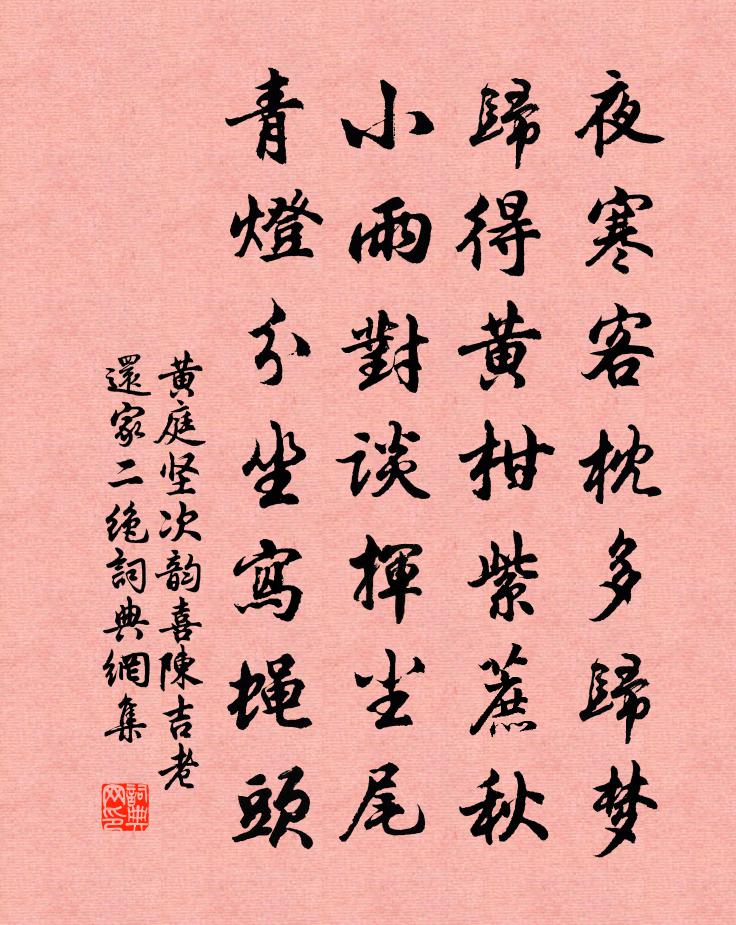 夜寒客枕多歸梦
歸得黄柑紫蔗秋
小雨對談揮尘尾
青燈分坐寫蝇頭
黄庭坚次韵喜陳吉老
還家二绝詞典網集
詞典网印